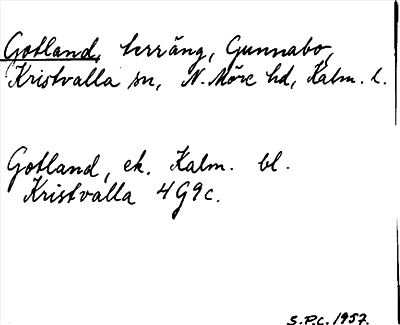 Gotland, terräng, Gunnabo,
Kristvalla sn, N. Möre hd, Kalm. l.
Gotland, ek. Kalm. bl.
Kristvalla 4G9c.
S.P.C. 1957.